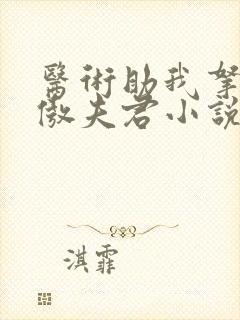 醫術助我拏
傲夫君小說
淇霏